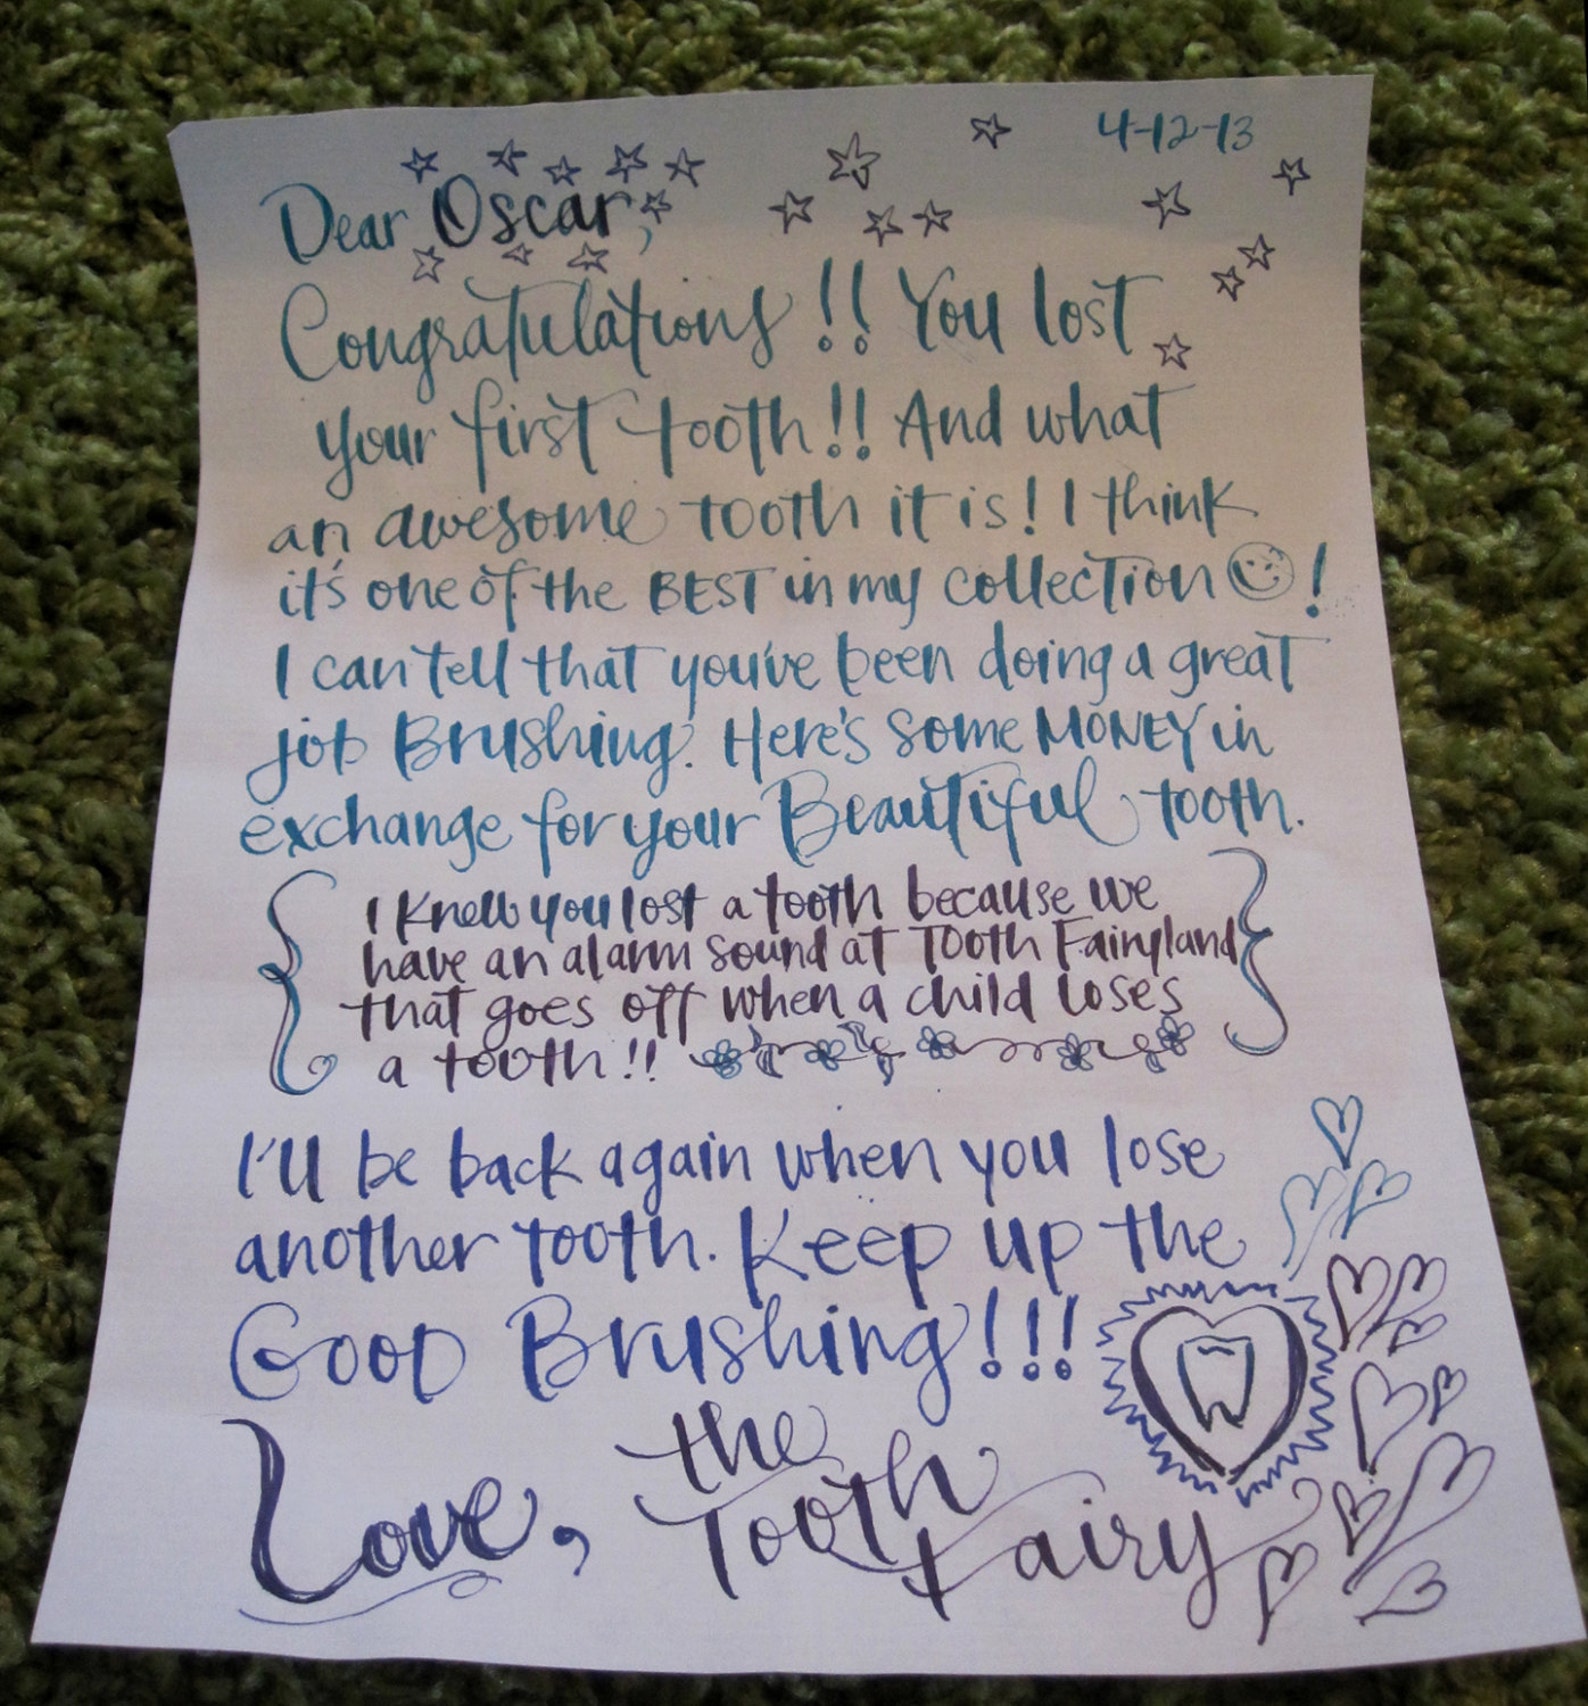 4-12-13
Dear Oscar,
Congratulations!! You lost
your first tooth!! And what
an awesome tooth it is! I think
it's one of the BEST in my collection ☺!
I can tell that you've been doing a great
job Brushing. Here's some MONEY in
exchange for your Beautiful tooth.
{ I knew you lost a tooth because we
have an alarm sound at Tooth Fairyland
that goes off when a child loses
a tooth!! }
I'll be back again when you lose
another tooth. Keep up the
Good Brushing!!!
Love, the
Tooth
Fairy